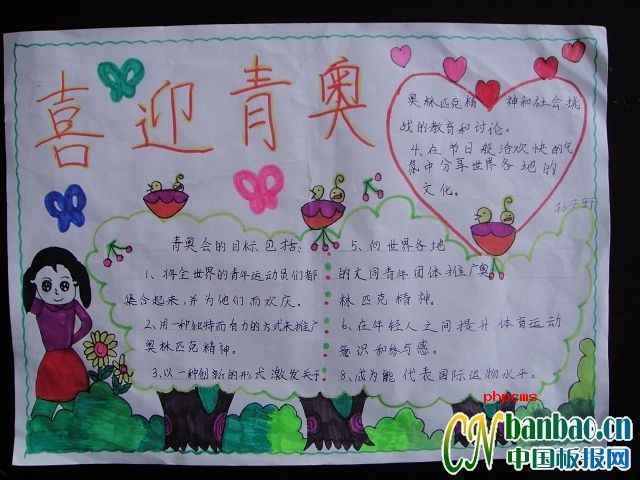 喜迎青奥
青奥会的目标包括:
1、将全世界的青年运动员们都
集合起来,并为他们而欢庆。
2、用一种独特而有力的方式来推广
奥林匹克精神。
3、以一种创新的形式激发关于
奥林匹克精神和社会挑
战的教育和讨论。
4、在节日般洽欢快的气
氛中分享世界各地的
文化。
5、向世界各地
的文同青年团体推广奥
林匹克精神。
6、在年轻人之间提升体育运动
意识和参与感。
8、成为能代表国际运物水平。
phpcms
CNbanbao.cn
中国板报网